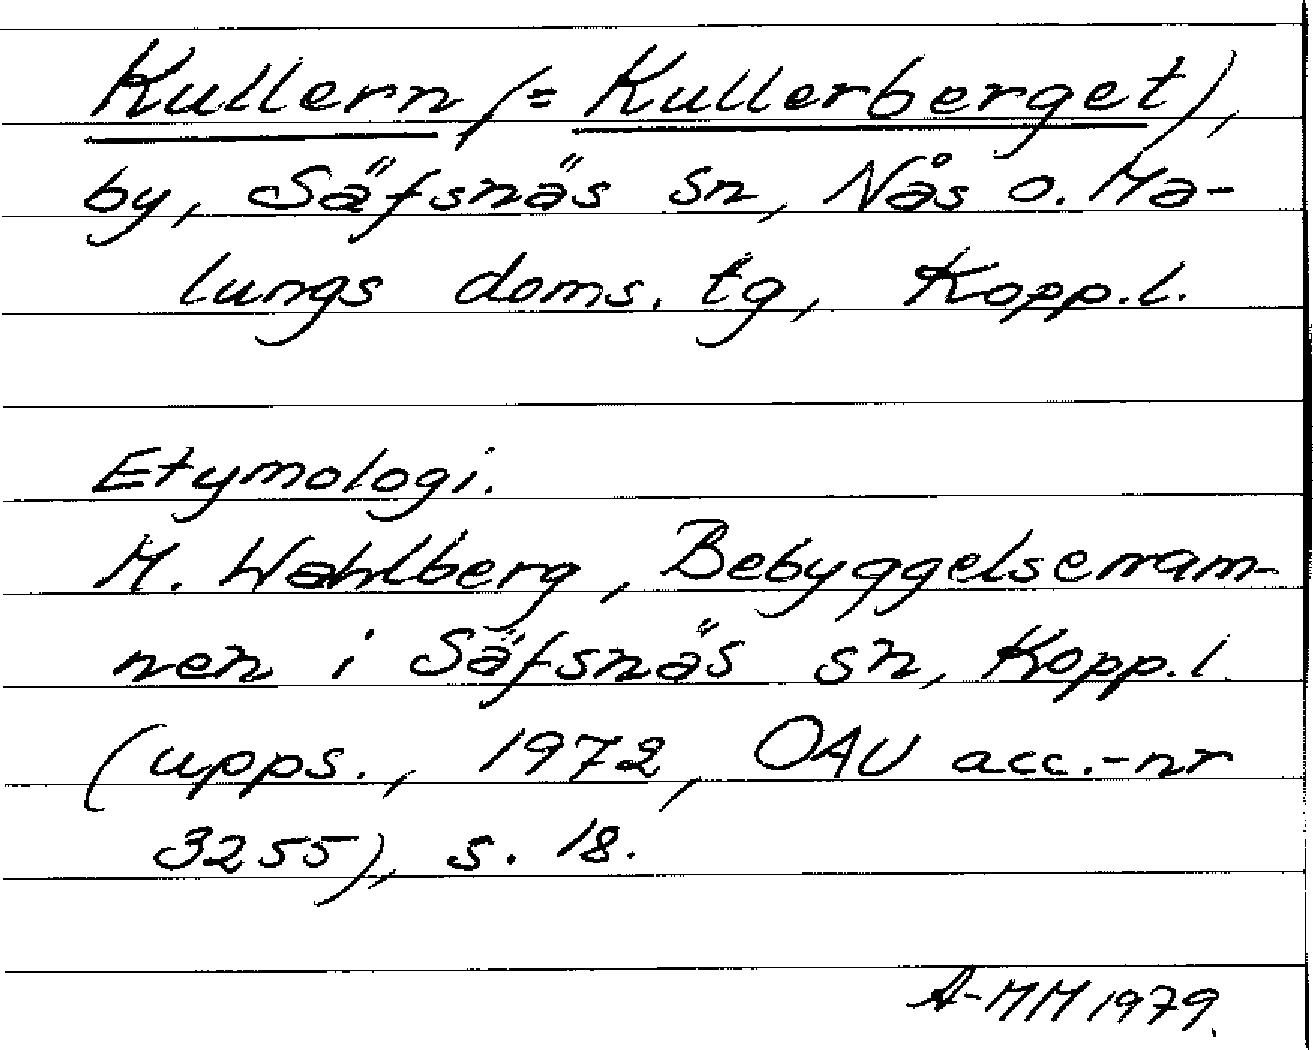 Kullern (= Kullerberget),
by, Säfsnäs sn, Nås o. Ma-
lungs doms. tg, Kopp.l.
Etymologi.
M. Wahlberg, Bebyggelsenam-
nen i Säfsnäs sn, Kopp.l.
(upps., 1972, OAU acc.-nr
3255), s. 18.
A-MM 1979.